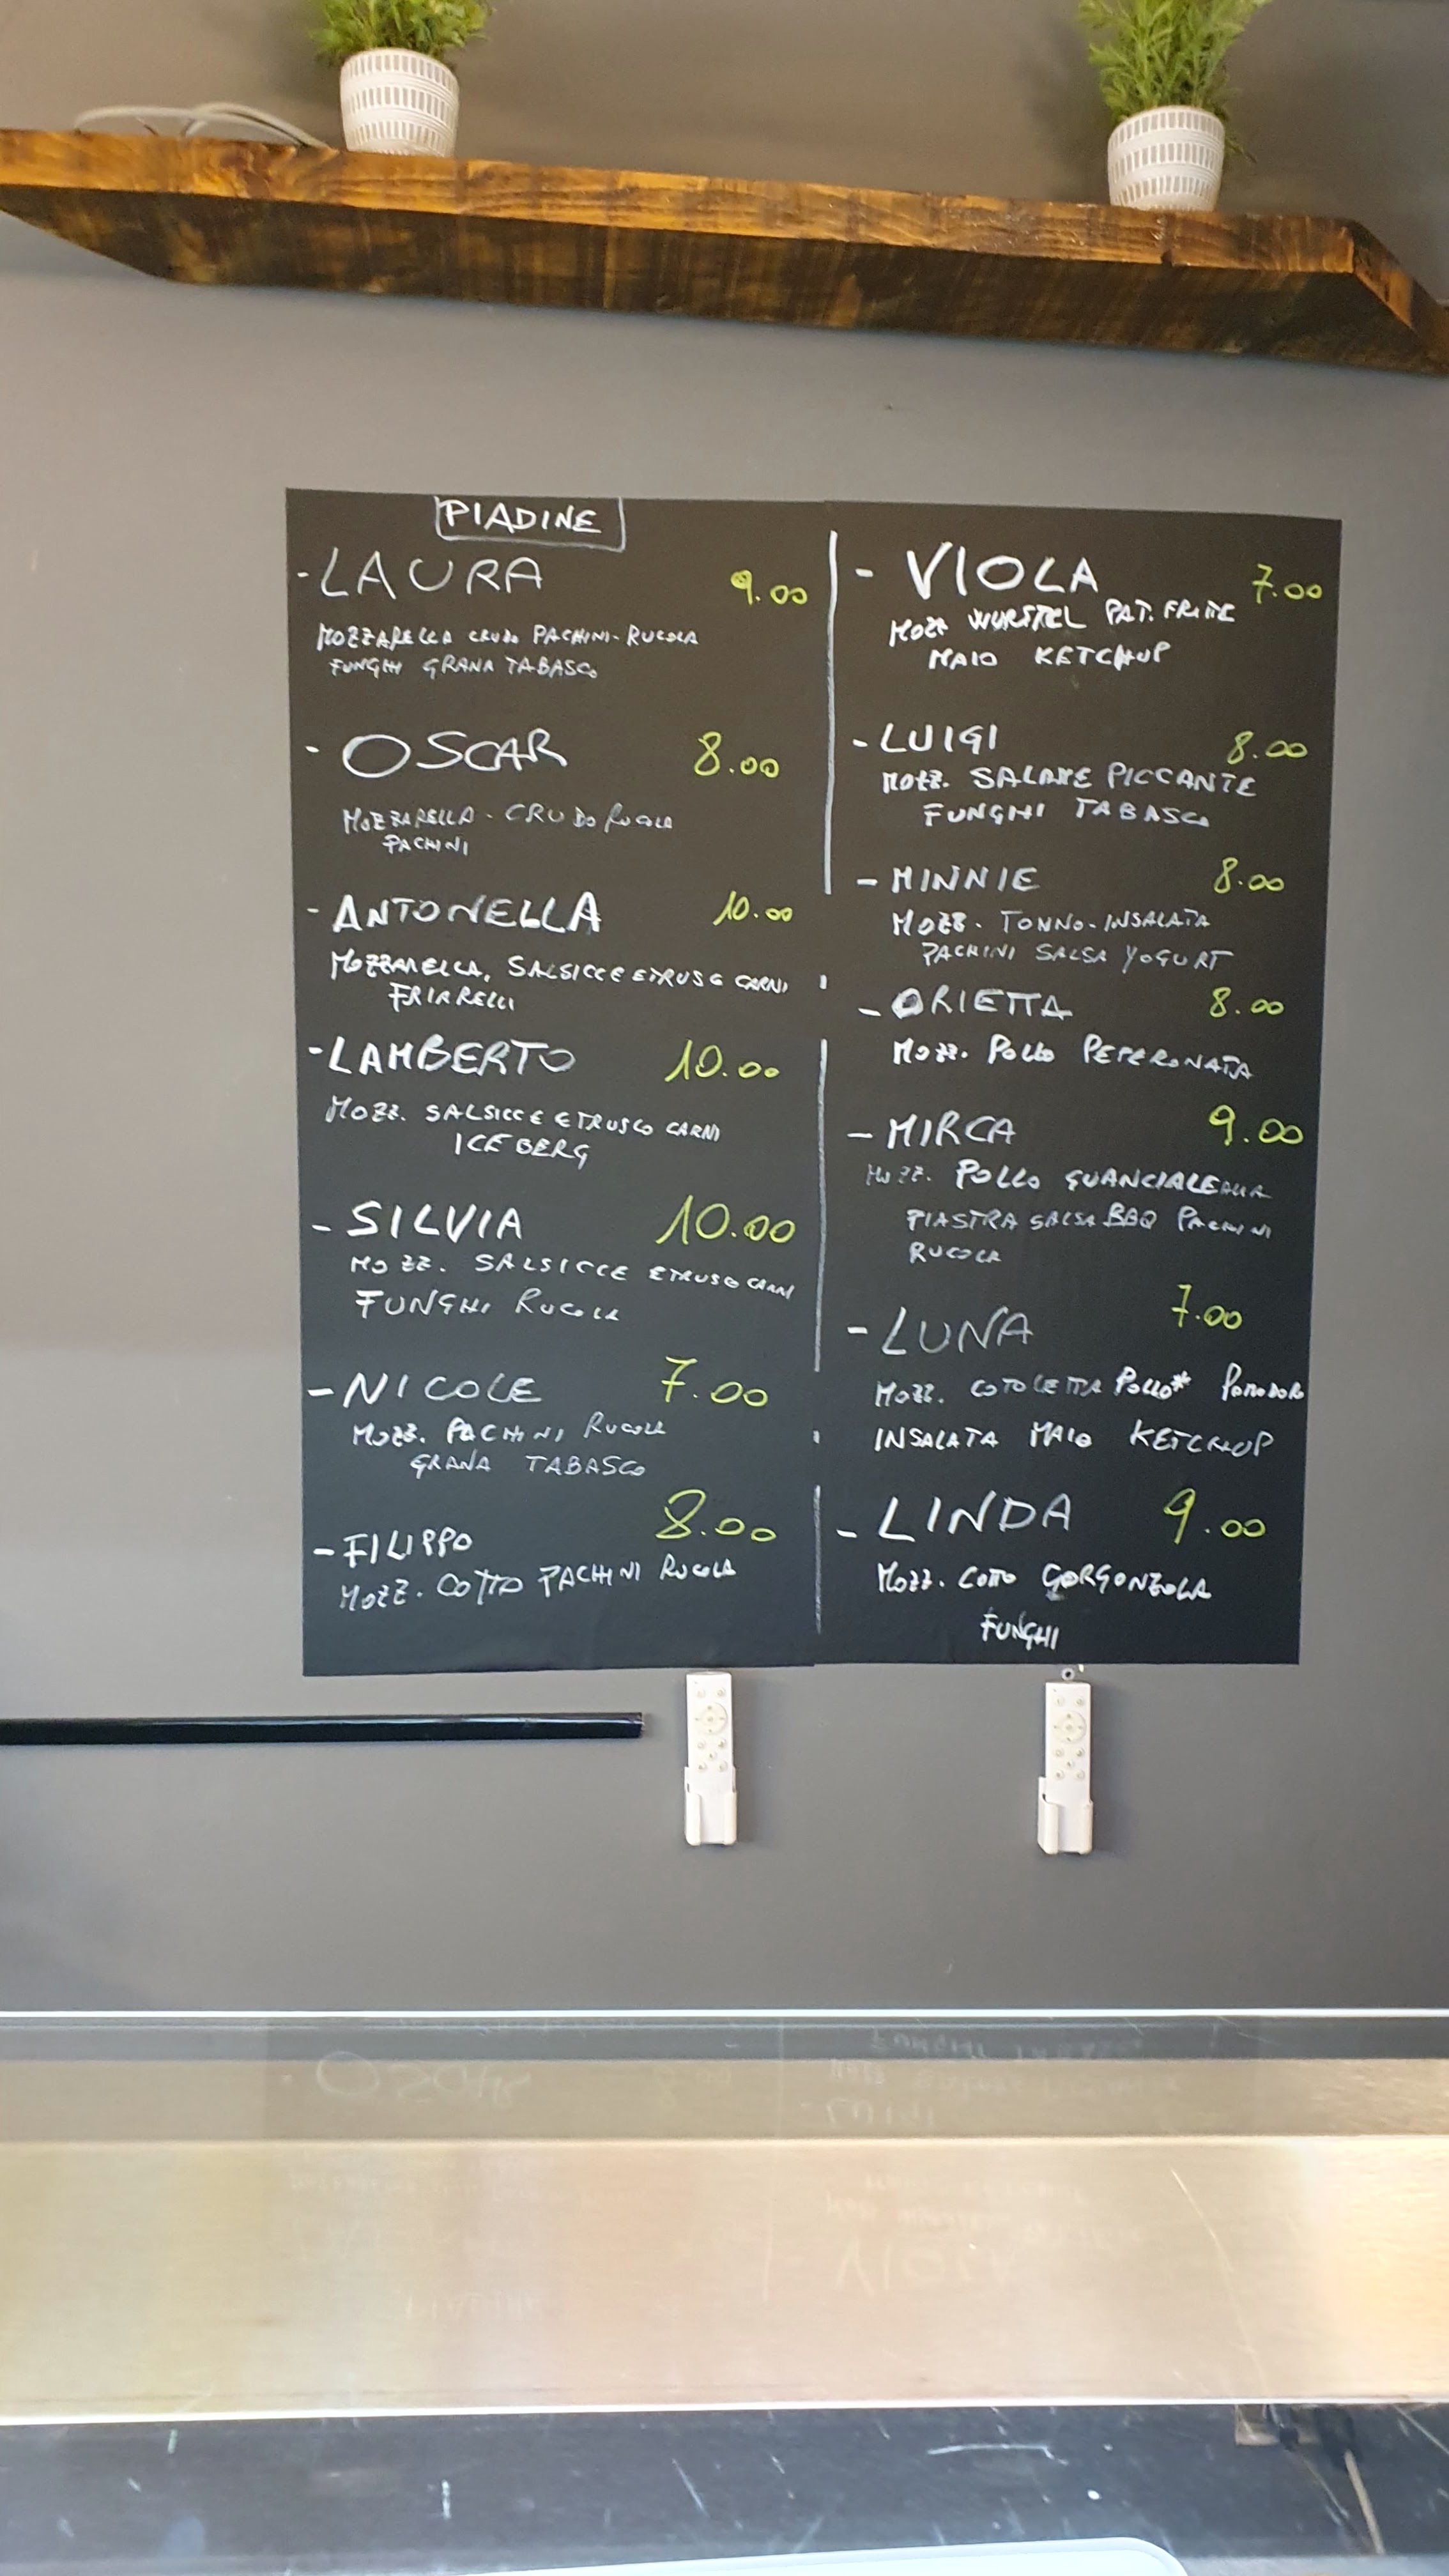 PIADINE
- LAURA 9.00
MOZZARELLA CRUDO PACHINI - RUCOLA
FUNGHI GRANA TABASCO
- OSCAR 8.00
MOZZARELLA - CRUDO RUCOLA
PACHINI
- ANTONELLA 10.00
MOZZARELLA, SALSICCE ETRUSCO CARNI
FRIARELLI
- LAMBERTO 10.00
MOZZ. SALSICCE ETRUSCO CARNI
ICEBERG
- SILVIA 10.00
MOZZ. SALSICCE ETRUSCO CARNI
FUNGHI RUCOLA
- NICOLE 7.00
MOZZ. PACHINI RUCOLA
GRANA TABASCO
- FILIPPO 8.00
MOZZ. COTTO PACHINI RUCOLA
- VIOLA 7.00
MOZZ WURSTEL PAT. FRITTE
MAIO KETCHUP
- LUIGI 8.00
MOZZ. SALAME PICCANTE
FUNGHI TABASCO
- MINNIE 8.00
MOZZ. TONNO - INSALATA
PACHINI SALSA YOGURT
- ORIETTA 8.00
MOZZ. POLLO PEPERONATA
- MIRCA 9.00
MOZZ. POLLO GUANCIALE ALLA
PIASTRA SALSA BBQ PACHINI
RUCOLA
- LUNA 7.00
MOZZ. COTOLETTA POLLO* POMODORO
INSALATA MAIO KETCHUP
- LINDA 9.00
MOZZ. COTTO GORGONZOLA
FUNGHI